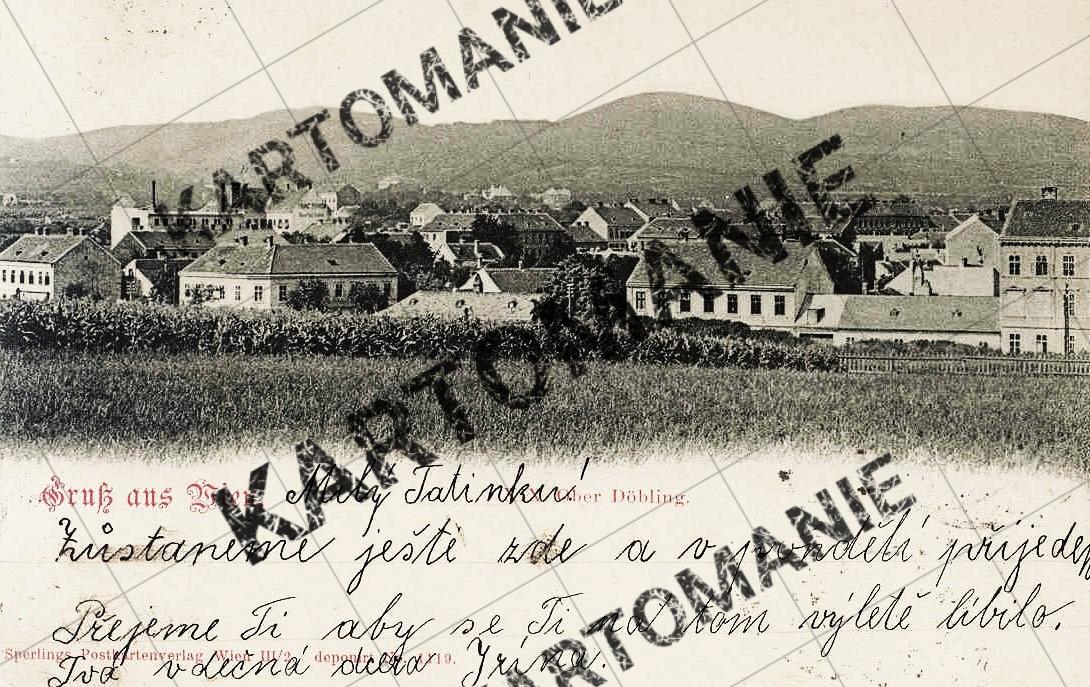 KARTOMANIE
KARTOMANIE
Gruß aus Wien
Ober Döbling.
Milý Tatínku!
Zůstaneme ještě zde a v pondělí přijedem
Přejeme Ti aby se Ti na tom výletě líbilo.
Sperlings Postkartenverlag, Wien III/2 deponirt 1119.
Tvá vděčná dcera Jrína.
KARTOMANIE
KARTOMANIE